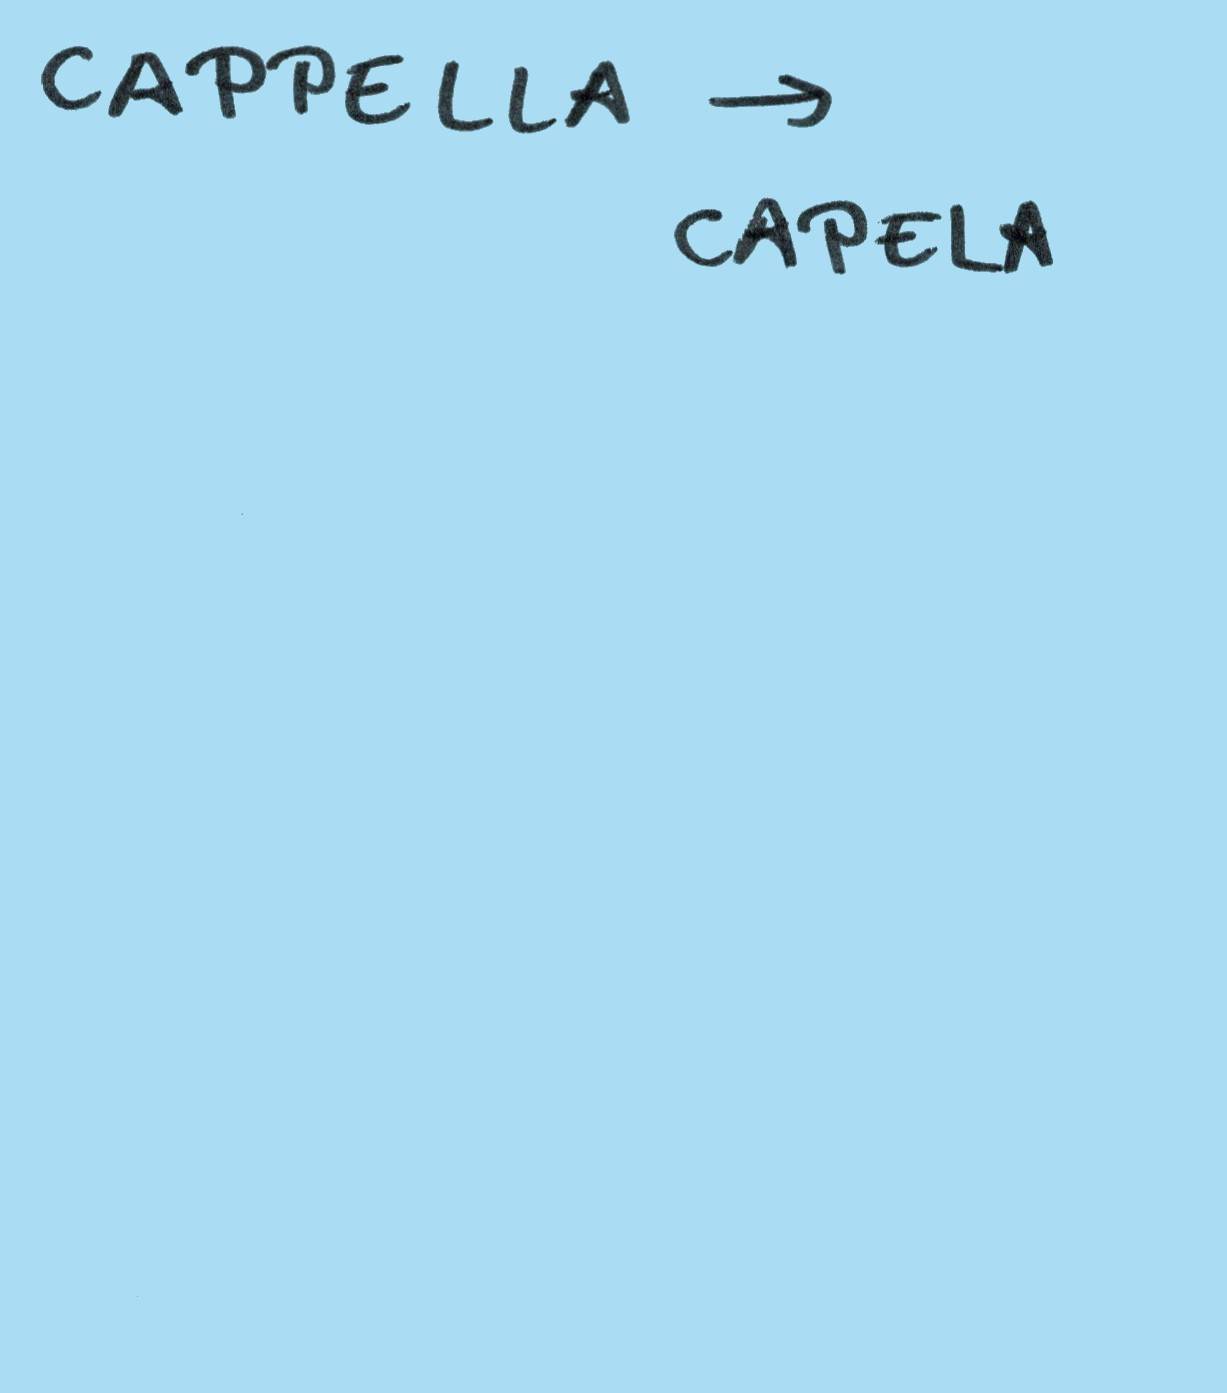 CAPPELLA →
CAPELA